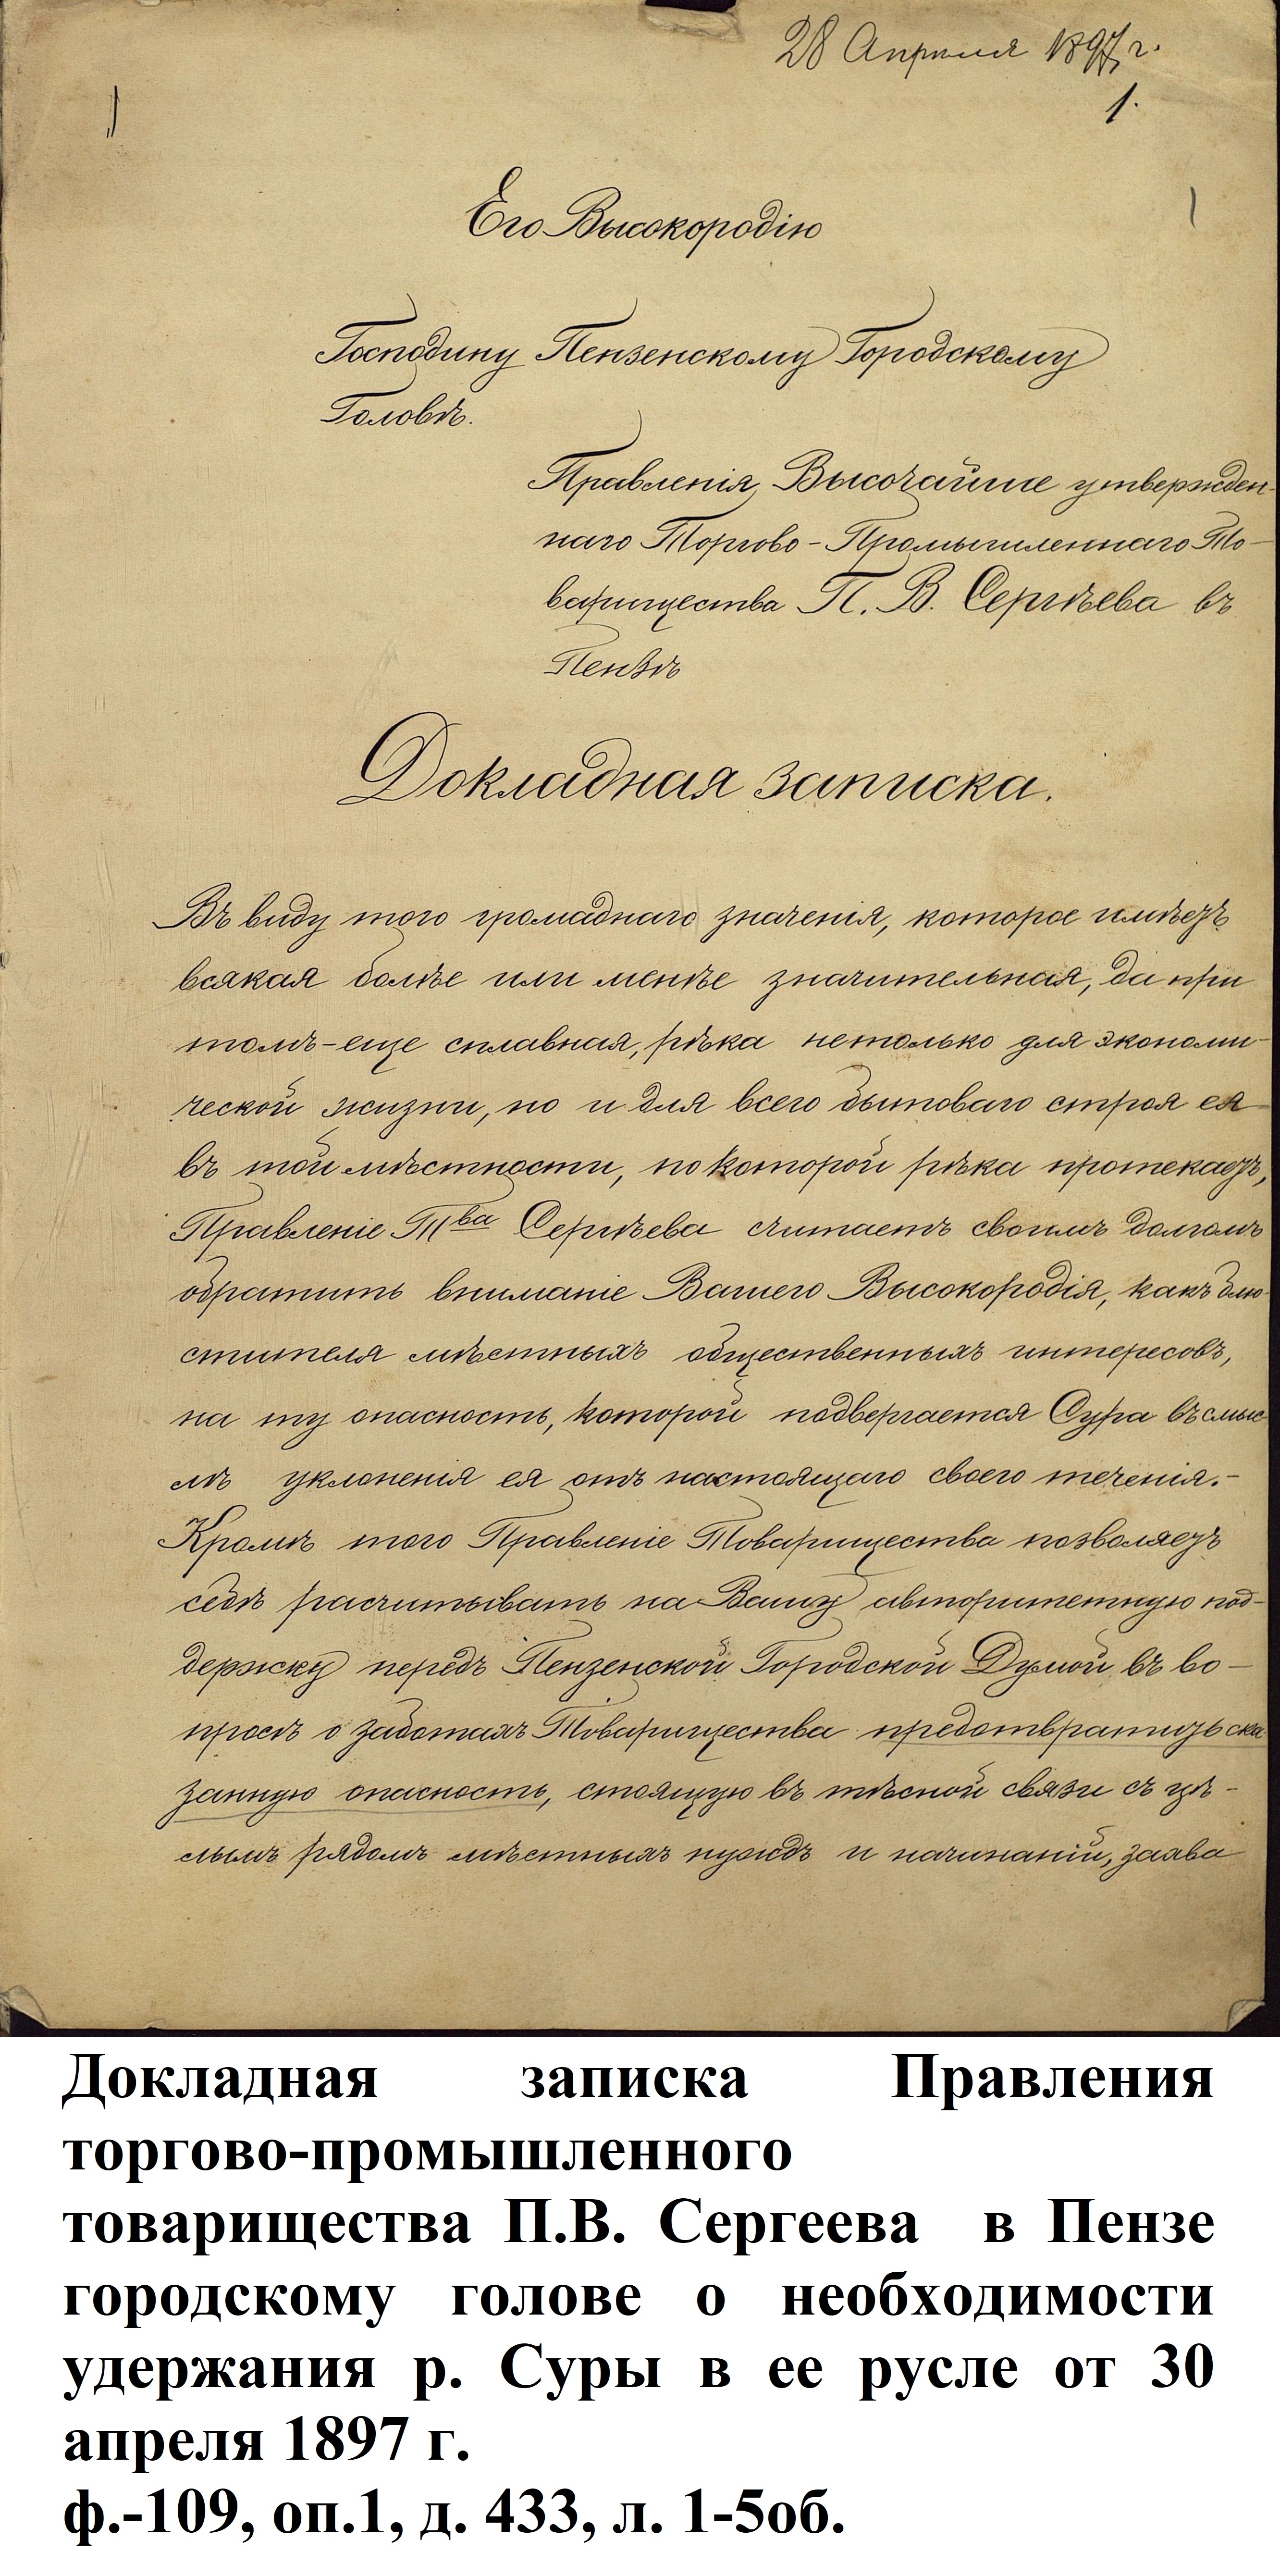 28 Апреля 1897 г.
1.
Его Высокородію
Господину Пензенскому Городскому
Головѣ.
Правленія Высочайше утвержден-
наго Торгово-Промышленнаго То-
варищества П. В. Сергѣева въ
Пензѣ
Докладная записка.
Въ виду того громаднаго значенія, которое имѣетъ
всякая болѣе или менѣе значительная, да при
томъ-еще сплавная, рѣка нетолько для экономи-
ческой жизни, но и для всего бытоваго строя ея
въ той мѣстности, по которой рѣка протекаетъ,
Правленіе Тва Сергѣева считаетъ своимъ долгомъ
обратить вниманіе Вашего Высокородія, какъ блю-
стителя мѣстныхъ общественныхъ интересовъ,
на ту опасность, которой подвергается Сура въ смыс
лѣ уклоненія ея отъ настоящаго своего теченія.-
Кромѣ того Правленіе Товарищества позволяетъ
себѣ расчитывать на Вашу авторитетную под-
держку передъ Пензенской Городской Думой въ во-
просѣ о заботахъ Товарищества предотвратить ска
занную опасность, стоящую въ тѣсной связи съ цѣ-
лымъ рядомъ мѣстныхъ нуждъ и начинаній, заява
Докладная записка Правления
торгово-промышленного
товарищества П.В. Сергеева в Пензе
городскому голове о необходимости
удержания р. Суры в ее русле от 30
апреля 1897 г.
ф.-109, оп.1, д. 433, л. 1-5об.